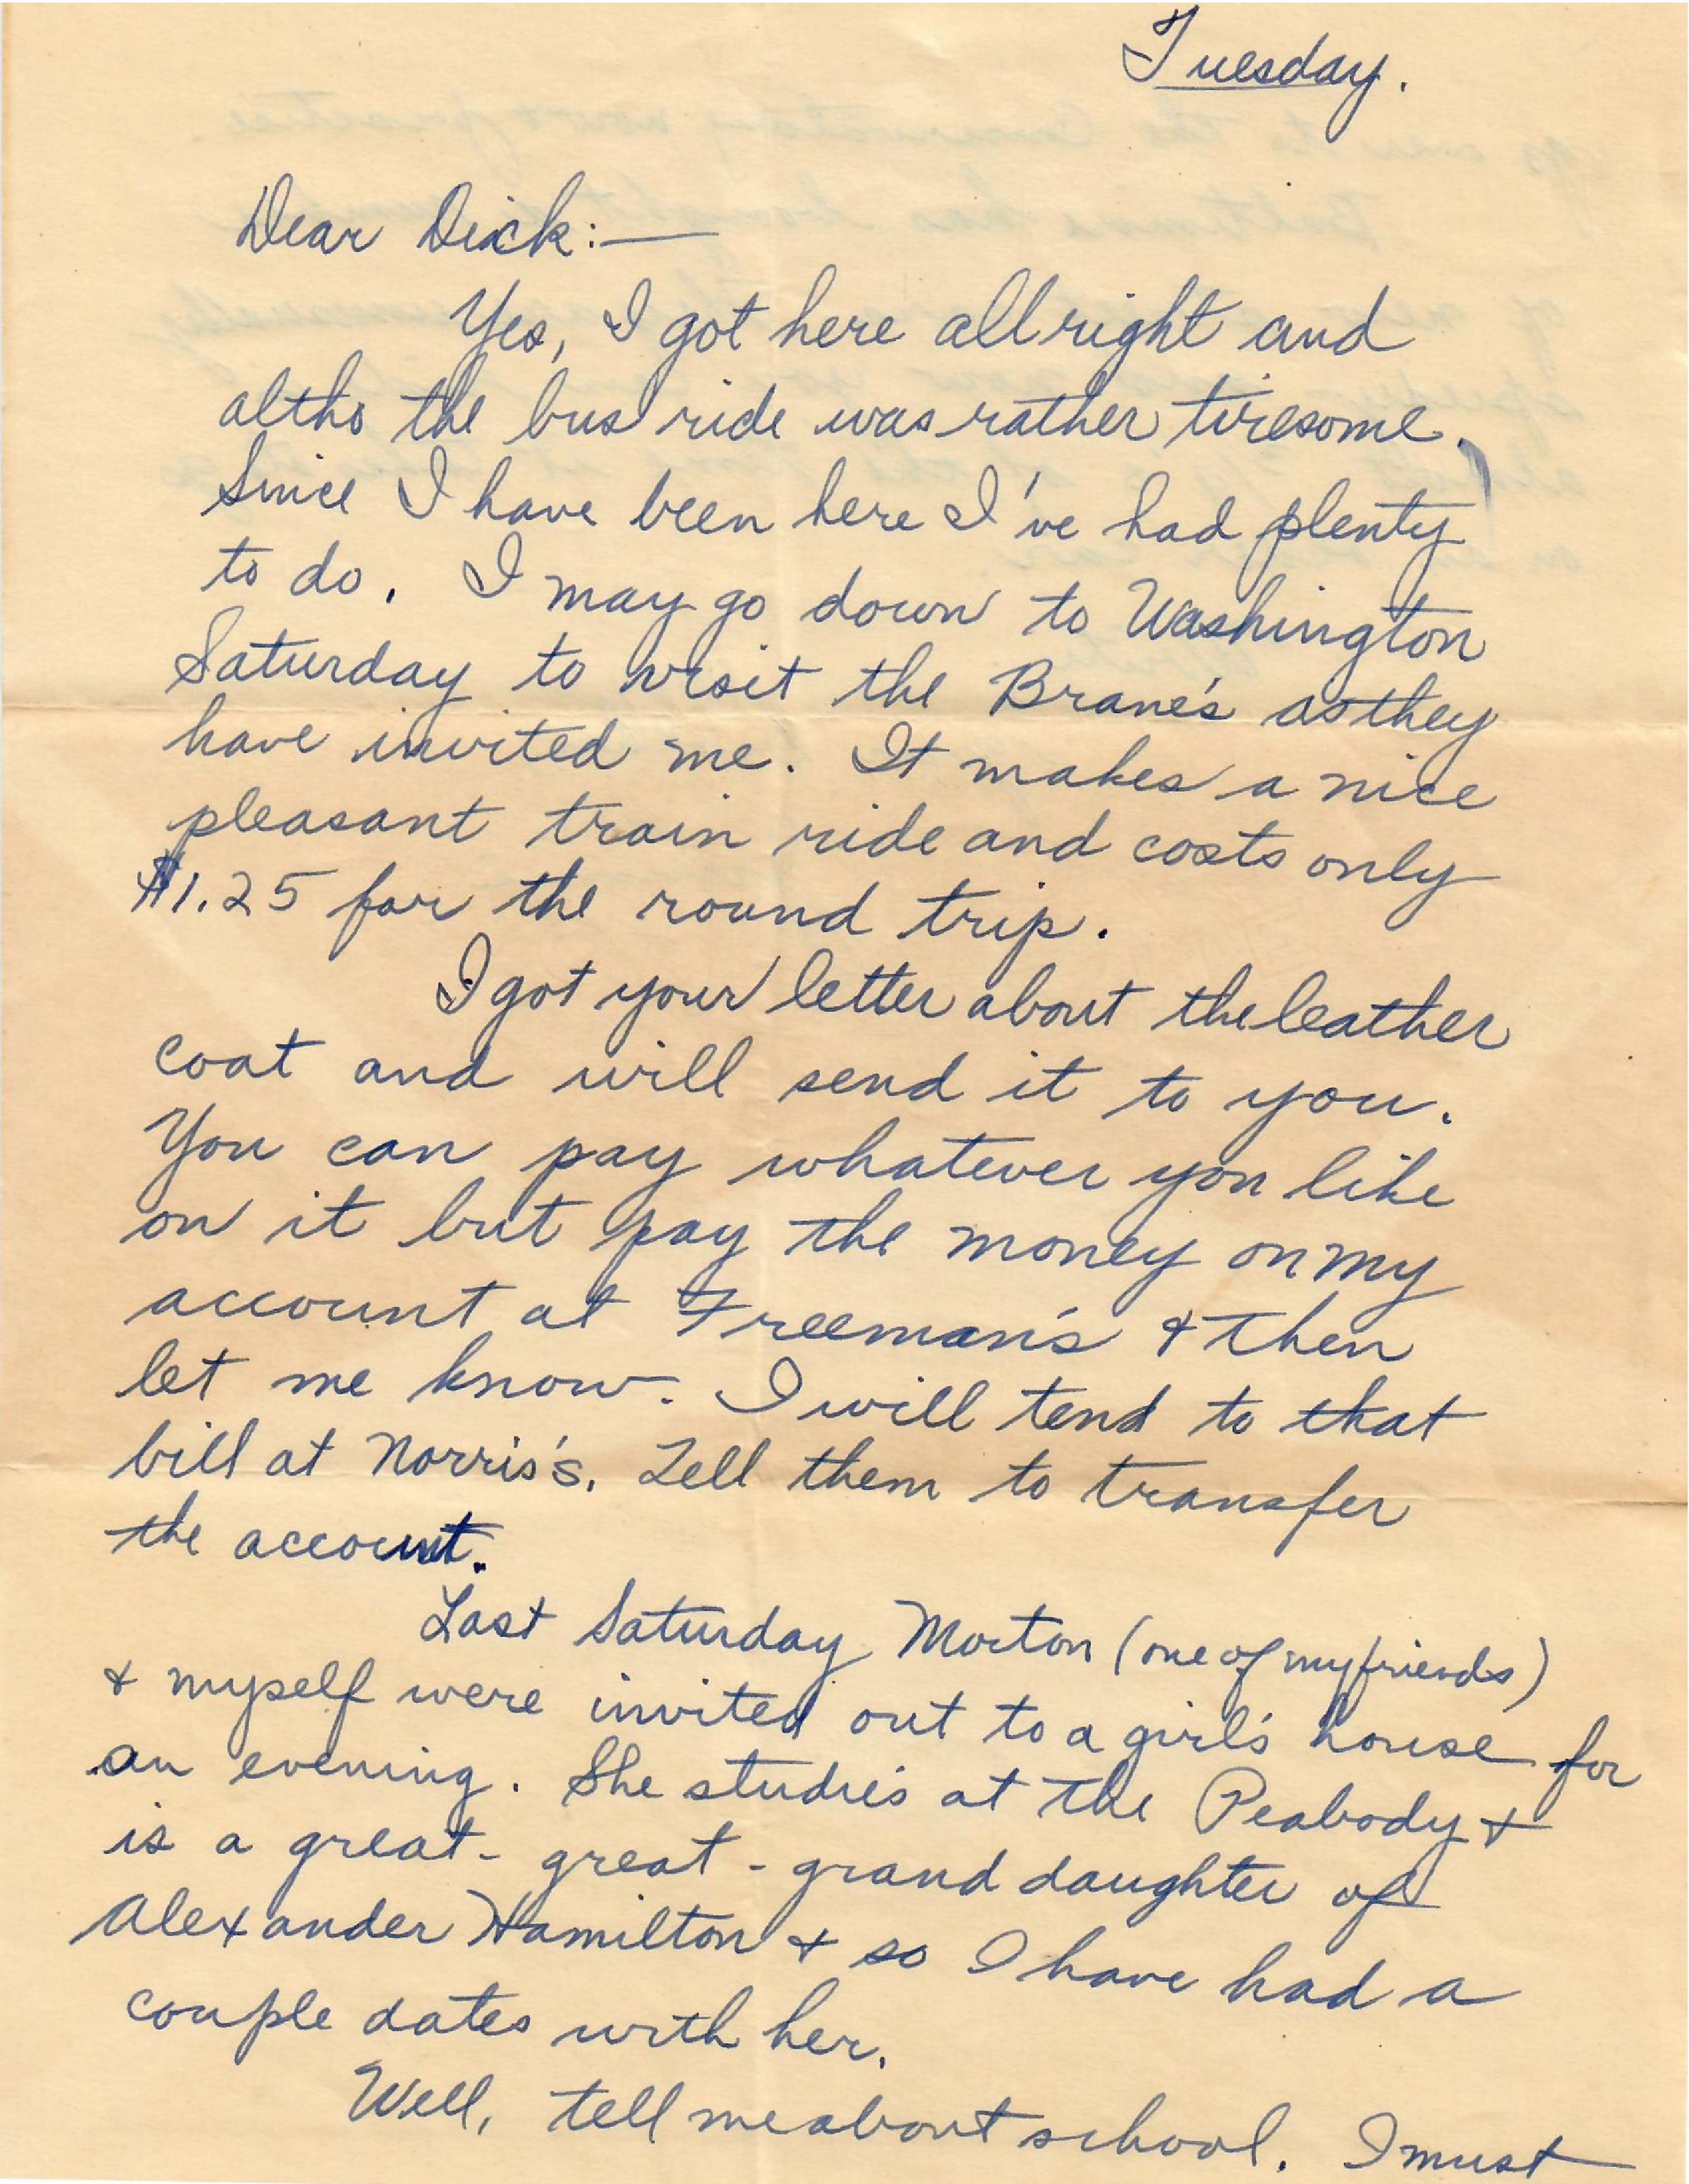 Tuesday.
Dear Dick:—
Yes, I got here all right and
altho the bus ride was rather tiresome.
Since I have been here I've had plenty
to do. I may go down to Washington
Saturday to visit the Brane's as they
have invited me. It makes a nice
pleasant train ride and costs only
$1.25 for the round trip.
I got your letter about the leather
coat and will send it to you.
You can pay whatever you like
on it but pay the money on my
account at Freeman's & then
let me know. I will tend to that
bill at Norris's. Tell them to transfer
the account.
Last Saturday Morton (one of my friends)
& myself were invited out to a girl's house for
an evening. She studies at the Peabody &
is a great-great-grand daughter of
Alexander Hamilton & so I have had a
couple dates with her.
Well, tell me about school. I must